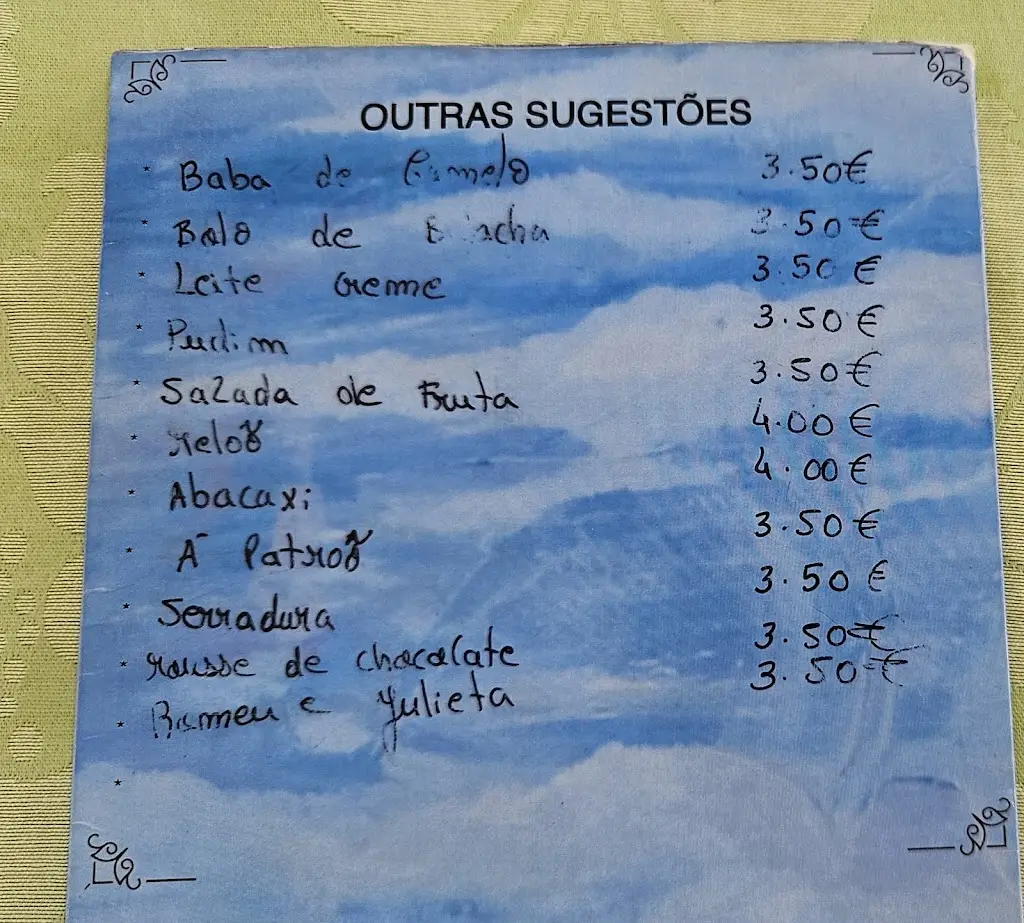 OUTRAS SUGESTÕES
Baba de Camelo 3.50€
Bolo de Bolacha 3.50€
Leite Creme 3.50€
Pudim 3.50€
Salada de Fruta 3.50€
Melão 4.00€
Abacaxi 4.00€
Á Patrão 3.50€
Serradura 3.50€
Mousse de chocolate 3.50€
Romeu e Julieta 3.50€